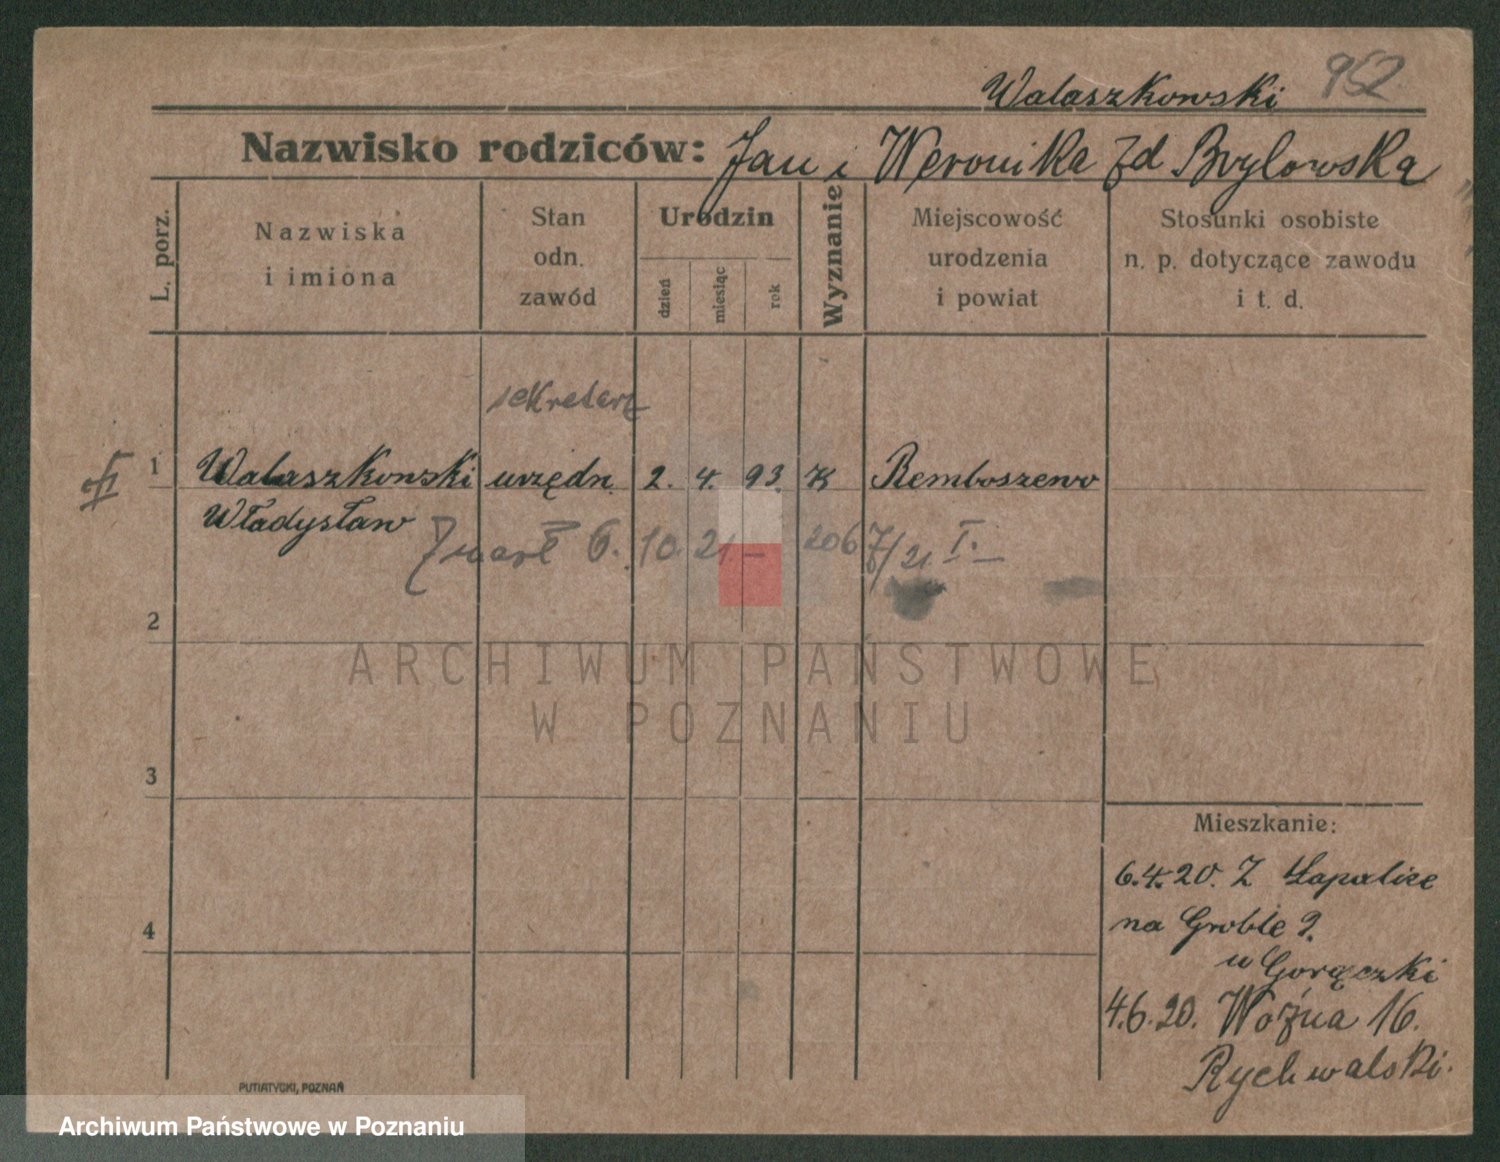 Walaszkowski 952
Nazwisko rodziców: Jan i Weronika zd Brylowska
L. porz.
Nazwiska
i imiona
Stan
odn.
zawód
Urodzin
dzień
miesiąc
rok
Wyznanie
Miejscowość
urodzenia
i powiat
Stosunki osobiste
n. p. dotyczące zawodu
i t. d.
sekretarz
1 Walaszkowski urzędn. 2. 4. 93. K Remboszewo
Władysław
Zmarł 6. 10. 21. – 2067/21 I.
2
ARCHIWUM PAŃSTWOWE
W POZNANIU
3
Mieszkanie:
6.4.20. Z Łapalice
4
na Groble 9.
u Gorączki
4.6.20. Woźna 16.
Rychwalski.
PUTIATYCKI, POZNAŃ
Archiwum Państwowe w Poznaniu